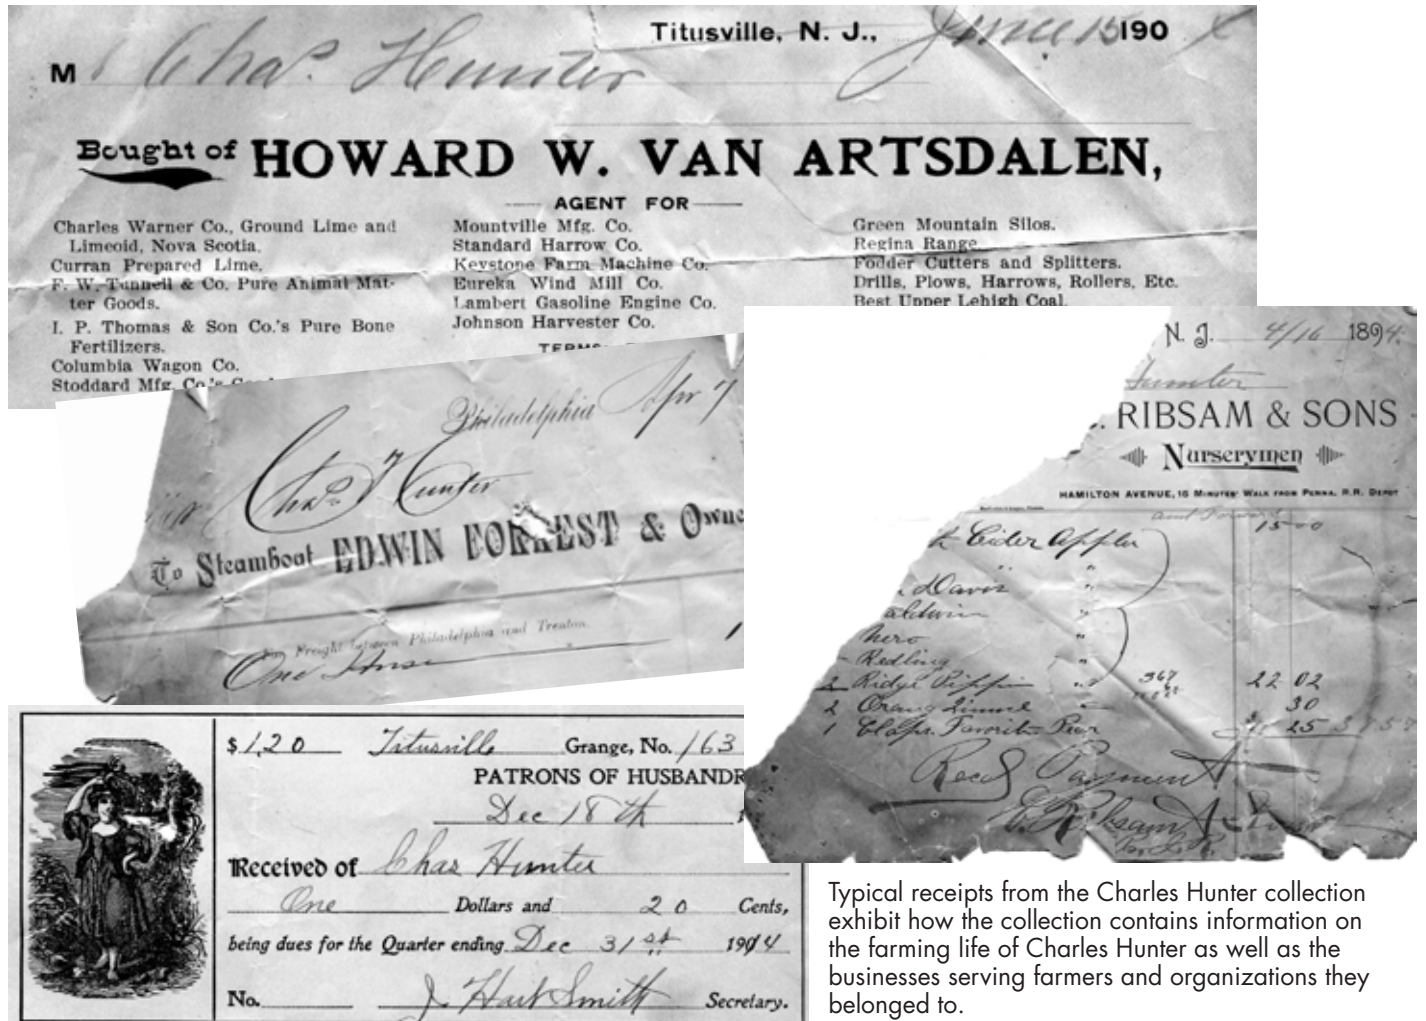 Titusville, N. J., June 15 190
M Chas. Hunter
Bought of HOWARD W. VAN ARTSDALEN,
AGENT FOR
Charles Warner Co., Ground Lime and
Limeoid, Nova Scotia.
Curran Prepared Lime.
F. W. Tunnell & Co. Pure Animal Mat-
ter Goods.
I. P. Thomas & Son Co.'s Pure Bone
Fertilizers.
Columbia Wagon Co.
Stoddard Mfg. Co.'s
Mountville Mfg. Co.
Standard Harrow Co.
Keystone Farm Machine Co.
Eureka Wind Mill Co.
Lambert Gasoline Engine Co.
Johnson Harvester Co.
TERMS
Green Mountain Silos.
Regina Range
Fodder Cutters and Splitters.
Drills, Plows, Harrows, Rollers, Etc.
Best Upper Lehigh Coal.
Philadelphia Apr 7
Chas Hunter
To Steamboat EDWIN FORREST & Owne
Freight between Philadelphia and Trenton.
One Horse
N. J. 4/16 1894.
Hunter
RIBSAM & SONS
Nurserymen
HAMILTON AVENUE, 15 MINUTES' WALK FROM PENNA. R.R. DEPOT
15 00
Cider Apples
" "
Davis "
aldwin "
hero "
Redling "
2 Ridge Pippin " 367 22 02
2 Orang 30
1 Clapps Favorite Pear 25
Recd Payment
C. Ribsam &
$1,20 Titusville Grange, No. 163
PATRONS OF HUSBANDR
Dec 18th
Received of Chas Hunter
One Dollars and 20 Cents,
being dues for the Quarter ending Dec 31st 1904
No. J. Hart Smith Secretary.
Typical receipts from the Charles Hunter collection
exhibit how the collection contains information on
the farming life of Charles Hunter as well as the
businesses serving farmers and organizations they
belonged to.